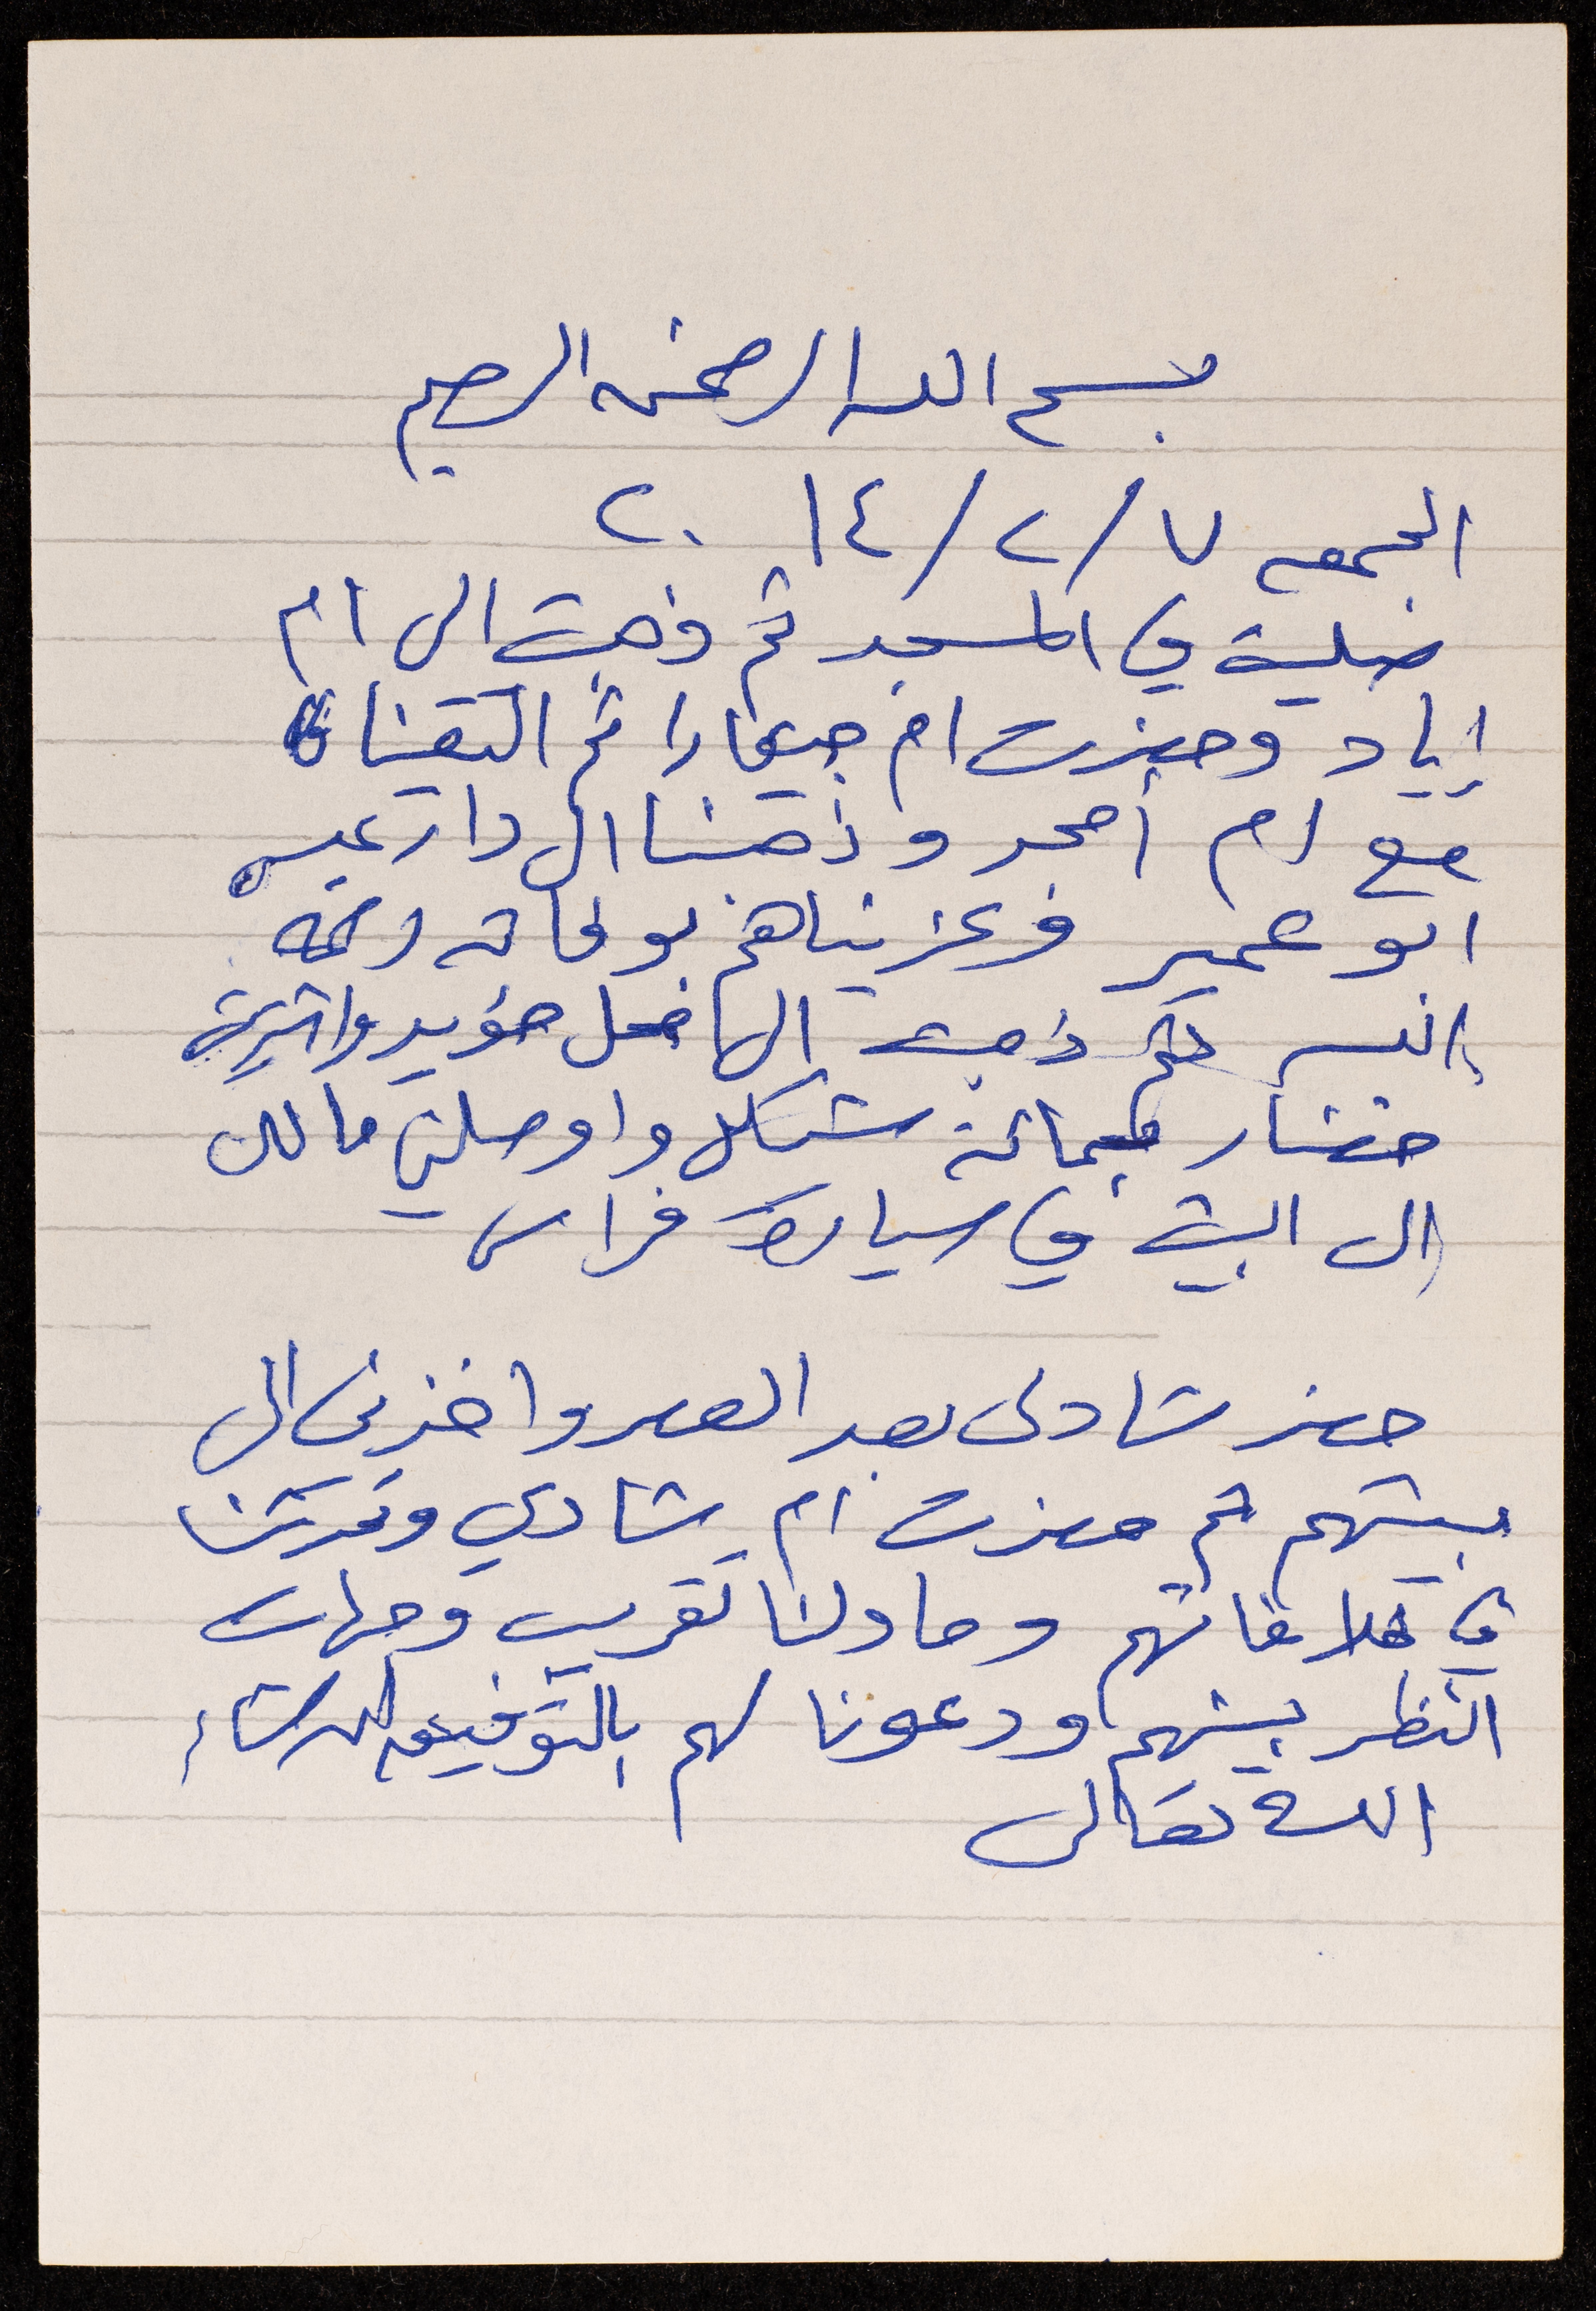 بسم الله الرحمن الرحيم
الجمعه ٧/٢/٢٠١٤
صليت في المسجد ثم ذهبت الى ام
اياد وحضرت ام جيفارا ثم التقينا
مع ام امجد وذهبنا الى دار عيسى
ابو عمير فعزيناهم بوفاته رحمه
الله ثم ذهبت الى محل مؤيد واشتريت
خضار بمائة شيكل واوصلني مالك
الى البيت في سيارة فراس
حضر شادي بعد العصر واخذني الى
بيتهم ثم حضرت ام شادي وتحدثنا
في خلافاتهم وحاولنا تقريب وجهات
النظر بينهم ودعونا لهم بالتوفيق ان شاء
الله تعالى